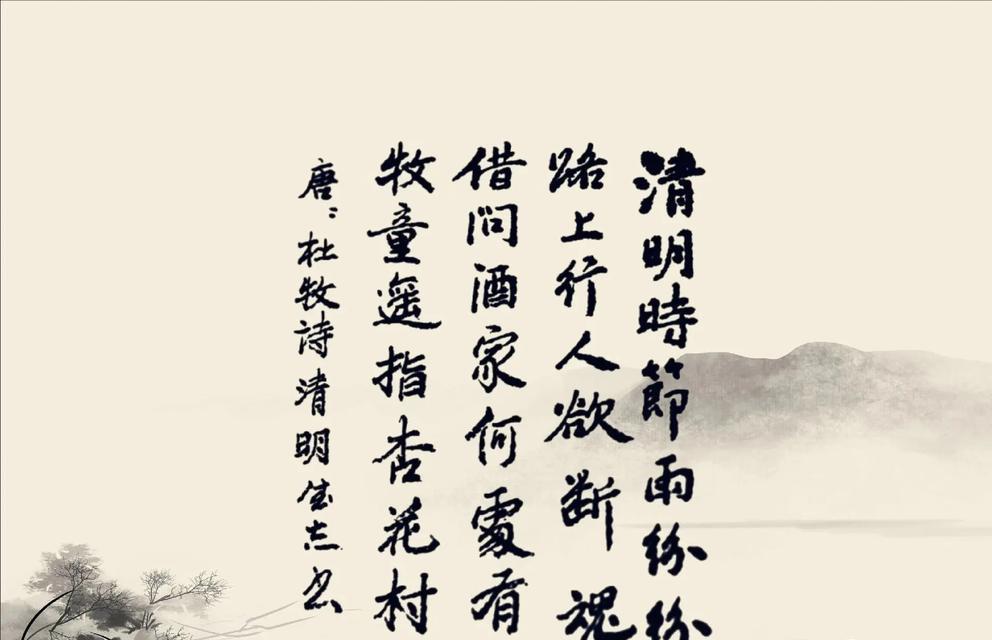 清明時節雨紛紛
路上行人欲斷魂
借問酒家何處有
牧童遥指杏花村
唐：杜牧詩清明